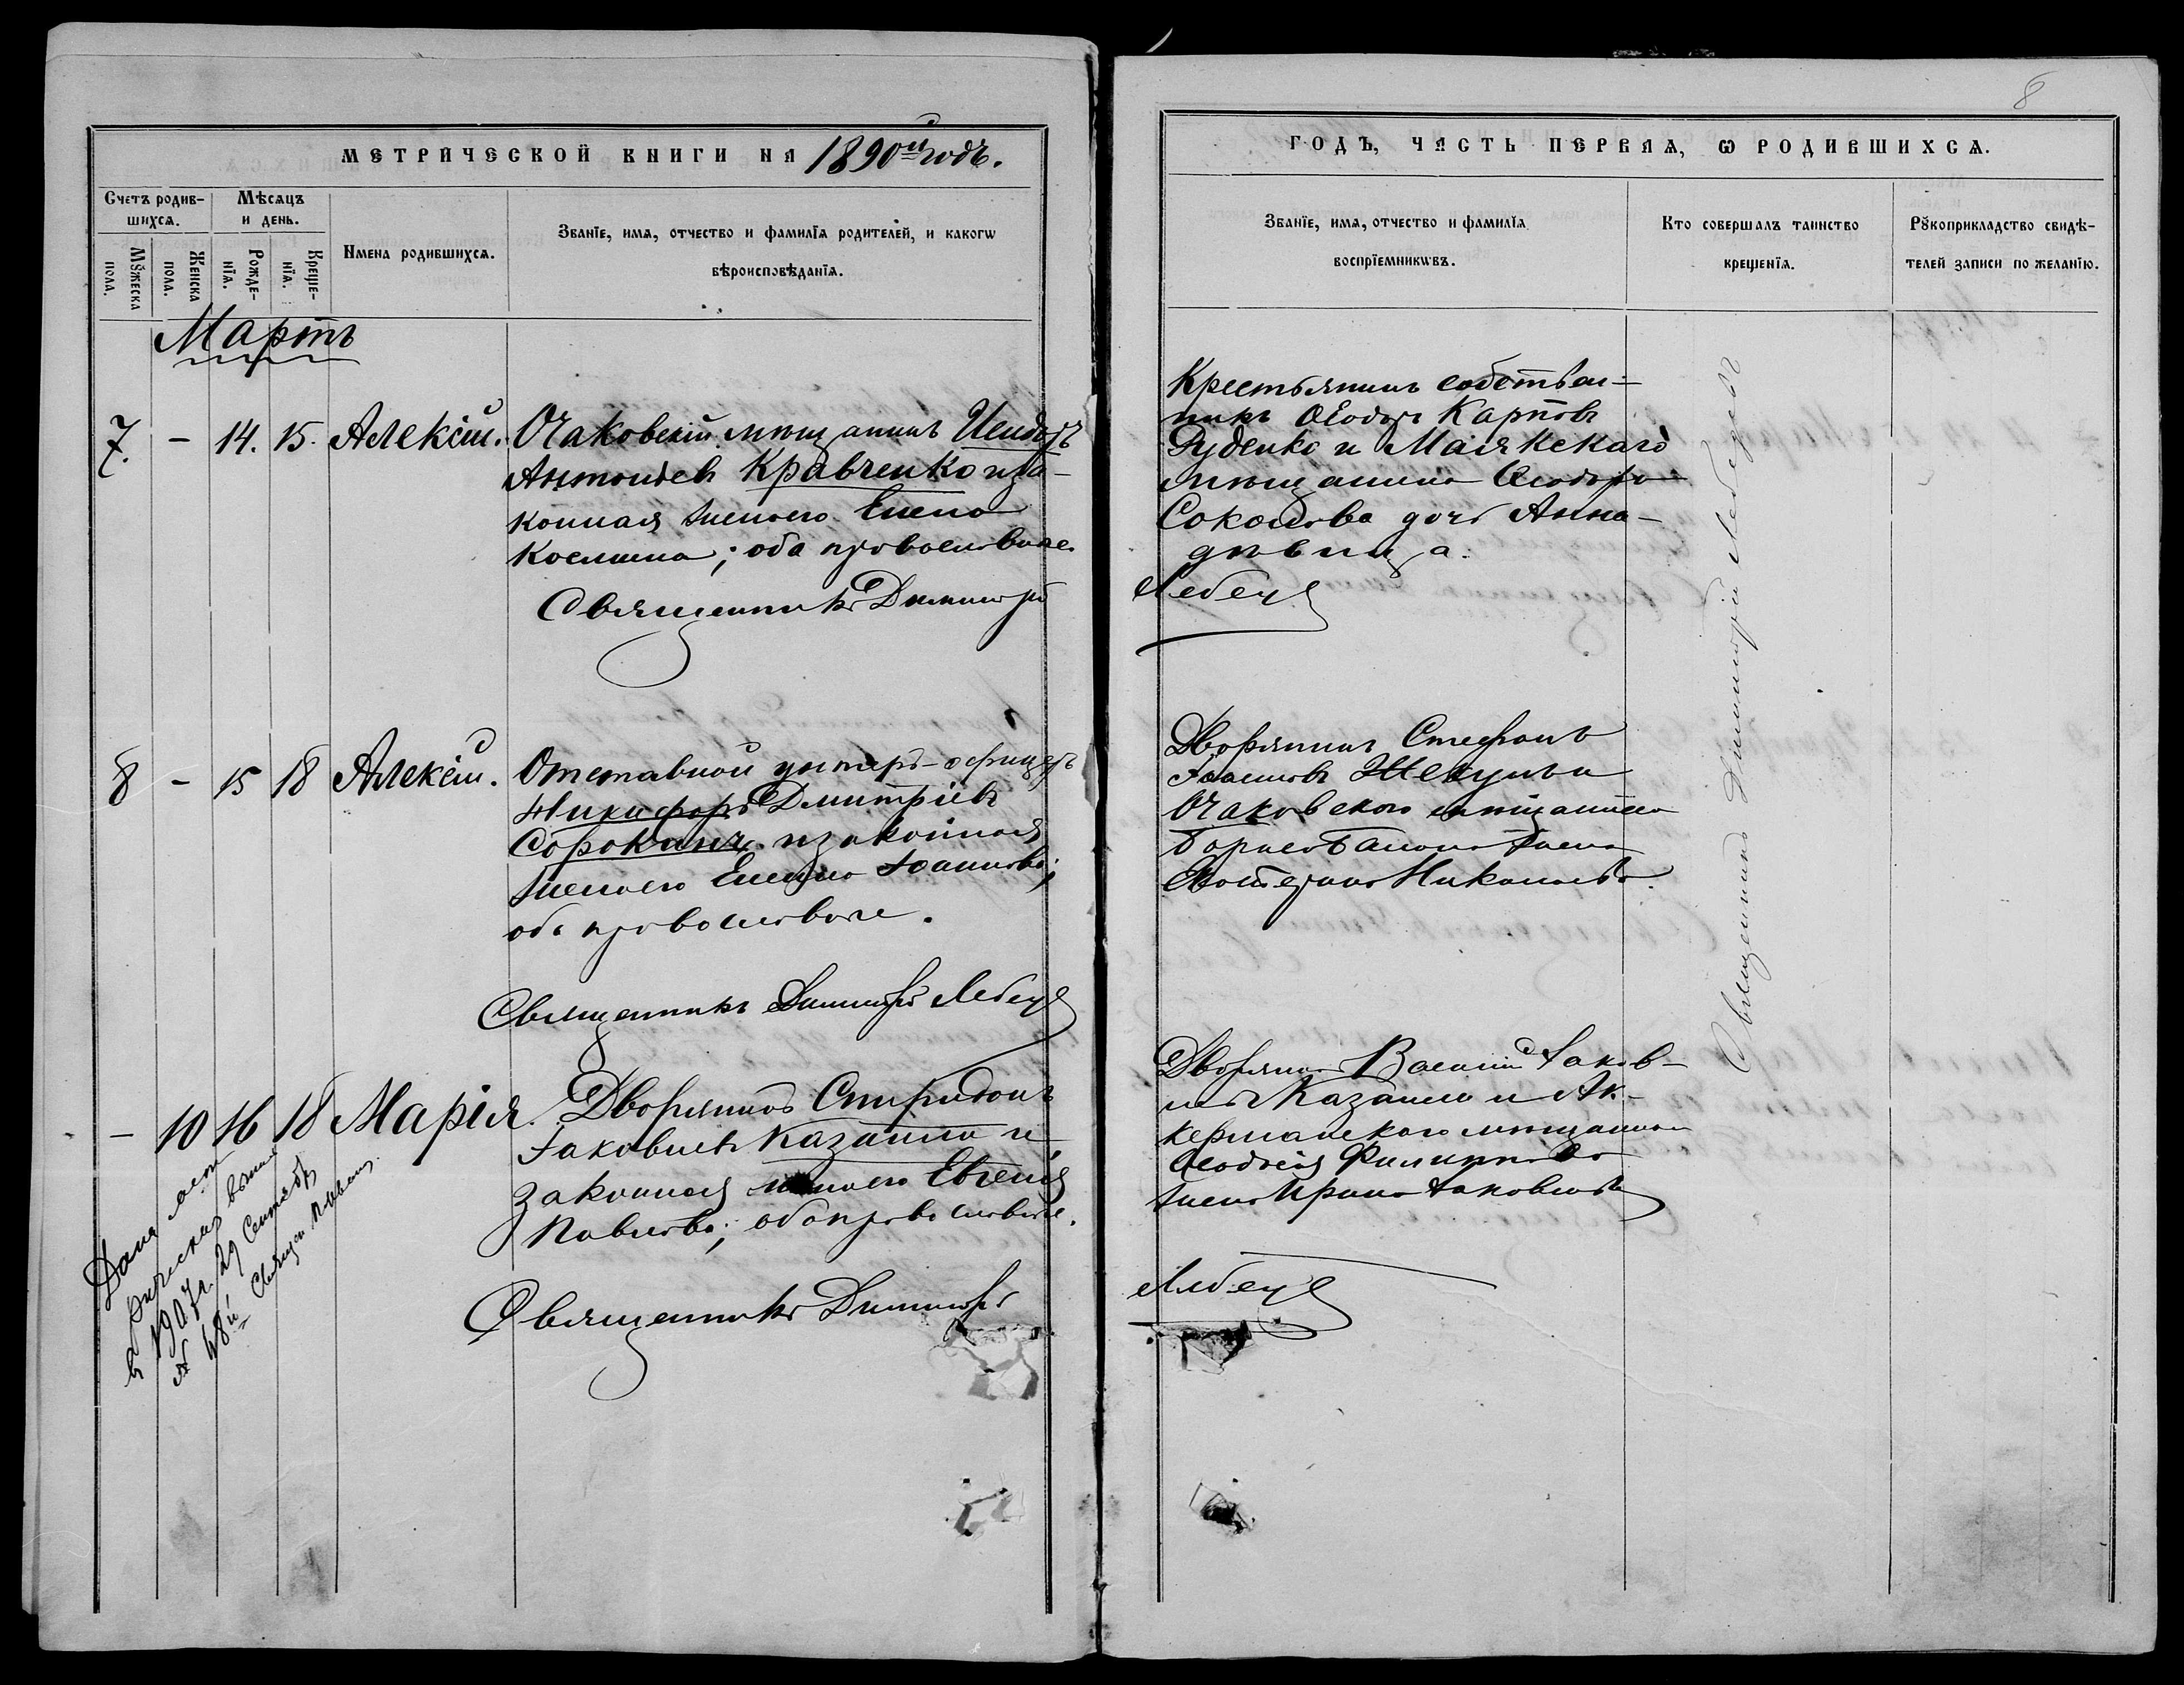 МЕТРИЧЕСКОЙ КНИГИ НА 1890ый годъ.
Счетъ родив-
шихся.
Мѣсяцъ
и день.
Мꙋжеска
пола.
Женска
пола.
Рожде-
нїя.
Креще-
нїя.
Имена родившихся.
Званїе, имя, отчество и фамилїя родителей, и какогѡ
вѣроисповѣданїя.
Мартъ
7. – 14. 15. Алексій.
Очаковскій мѣщанинъ Исидоръ
Антоніевъ Кравченко и за-
конная жена его Елена
Космина; оба православные.
Священникъ Димитрій
8 – 15 18 Алексій.
Отставной унтеръ-офицеръ
Никифоръ Дмитріевъ
Сорокинъ и законная
жена его Елена Іоаннова;
оба православные.
Священникъ Димитрій Лебедевъ
– 10 16 18 Марія.
Дворянинъ Спиридонъ
Іаковлевъ Казанли и
законная жена его Евгенія
Павлова; оба православные.
Священникъ Димитрій
Дана мет
рическая выпись
в 1907 г. 29 Сентября
№ 48й Священ.
8
ГОДЪ, ЧАСТЬ ПЕРВАЯ, Ѡ РОДИВШИХСЯ.
Званїе, имя, отчество и фамилїя
воспрїемникѡвъ.
Кто совершалъ таинство
крещенїя.
Рꙋкоприкладство свидѣ-
телей записи по желанїю.
Крестьянинъ собствен-
никъ Ѳеодоръ Карповъ
Руденко и Маякскаго
мѣщанина Ѳеодора
Соколова дочь Анна
дѣвица.
Лебедевъ
Дворянинъ Стефанъ
Іоанновъ и
Очаковскаго мѣщанина
Бориса жена
Екатерина Николаева.
Дворянинъ Василій Іаков-
левъ Казанли и Ак-
керманскаго мѣщанина
Ѳеодосія Филиппова
жена Ирина Іаковлева
Лебедевъ
Священникъ Димитрій Лебедевъ